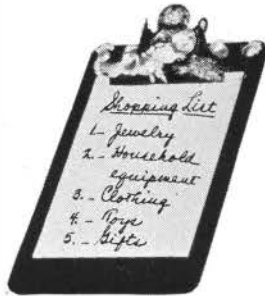 Shopping List
1- Jewelry
2.- Household
equipment
3.- Clothing
4.- Toys
5.- Gifts